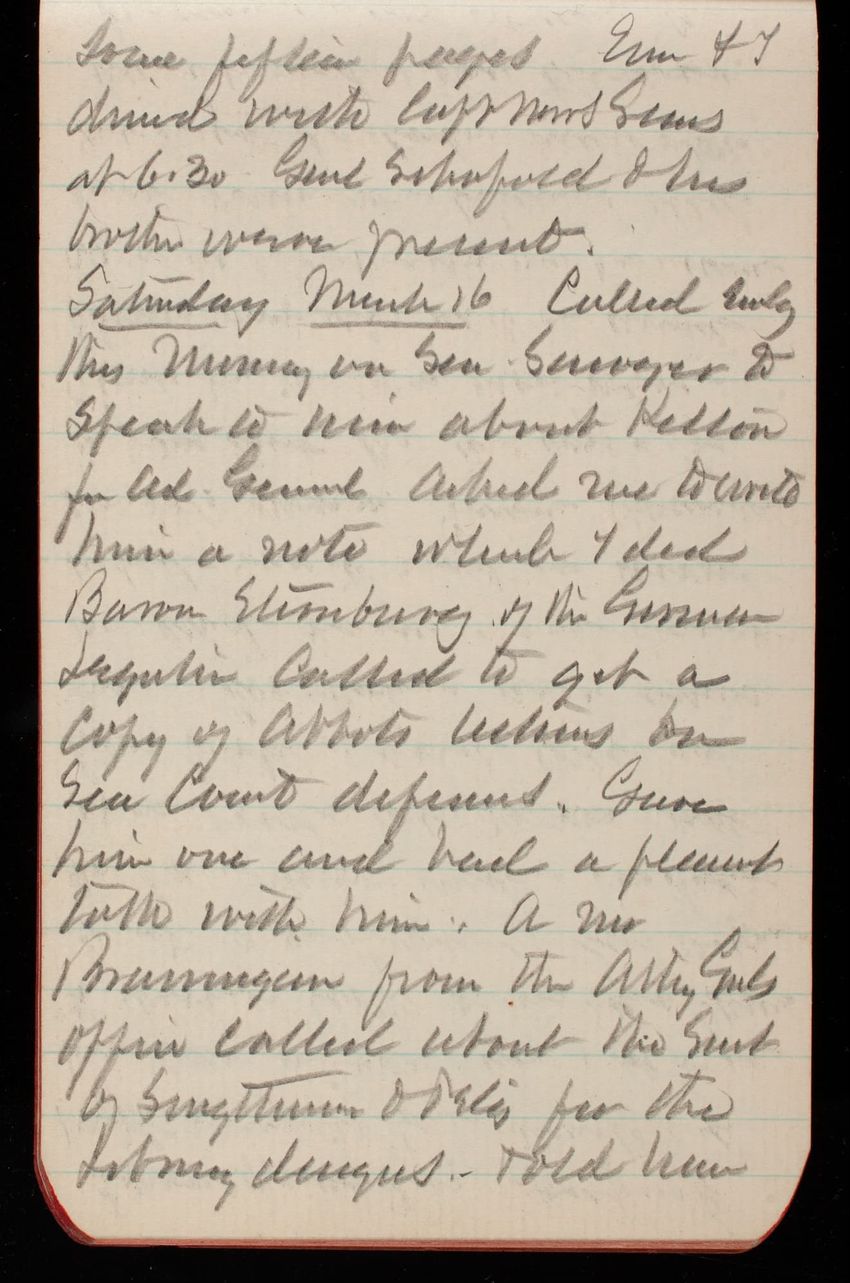 some fifteen pages Em & I
dined with Capt Sears
at 6.30 Genl Schofield & his
brother were present.
Saturday March 16 Called early
this Morning on Gen to
speak to him about Kelton
for Ad. General Asked me to write
him a note which I did
Baron Sternburg of the German
Legation called to get a
Copy of Abbots lectures on
Sea Coast defenses. Gave
him one and had a pleasant
talk with him. A Mr
from the Atty Genls
office called about the Suit
of Smithmeyer & Pelz for the
Library designs. Told him